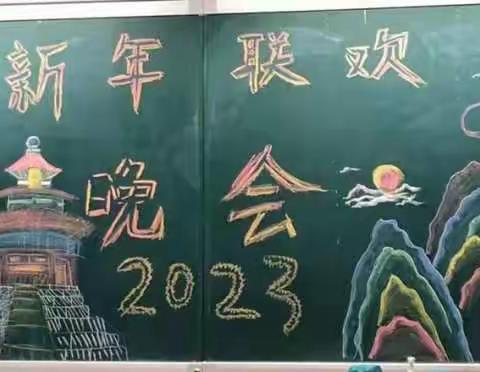 新年联欢
晚会
2023